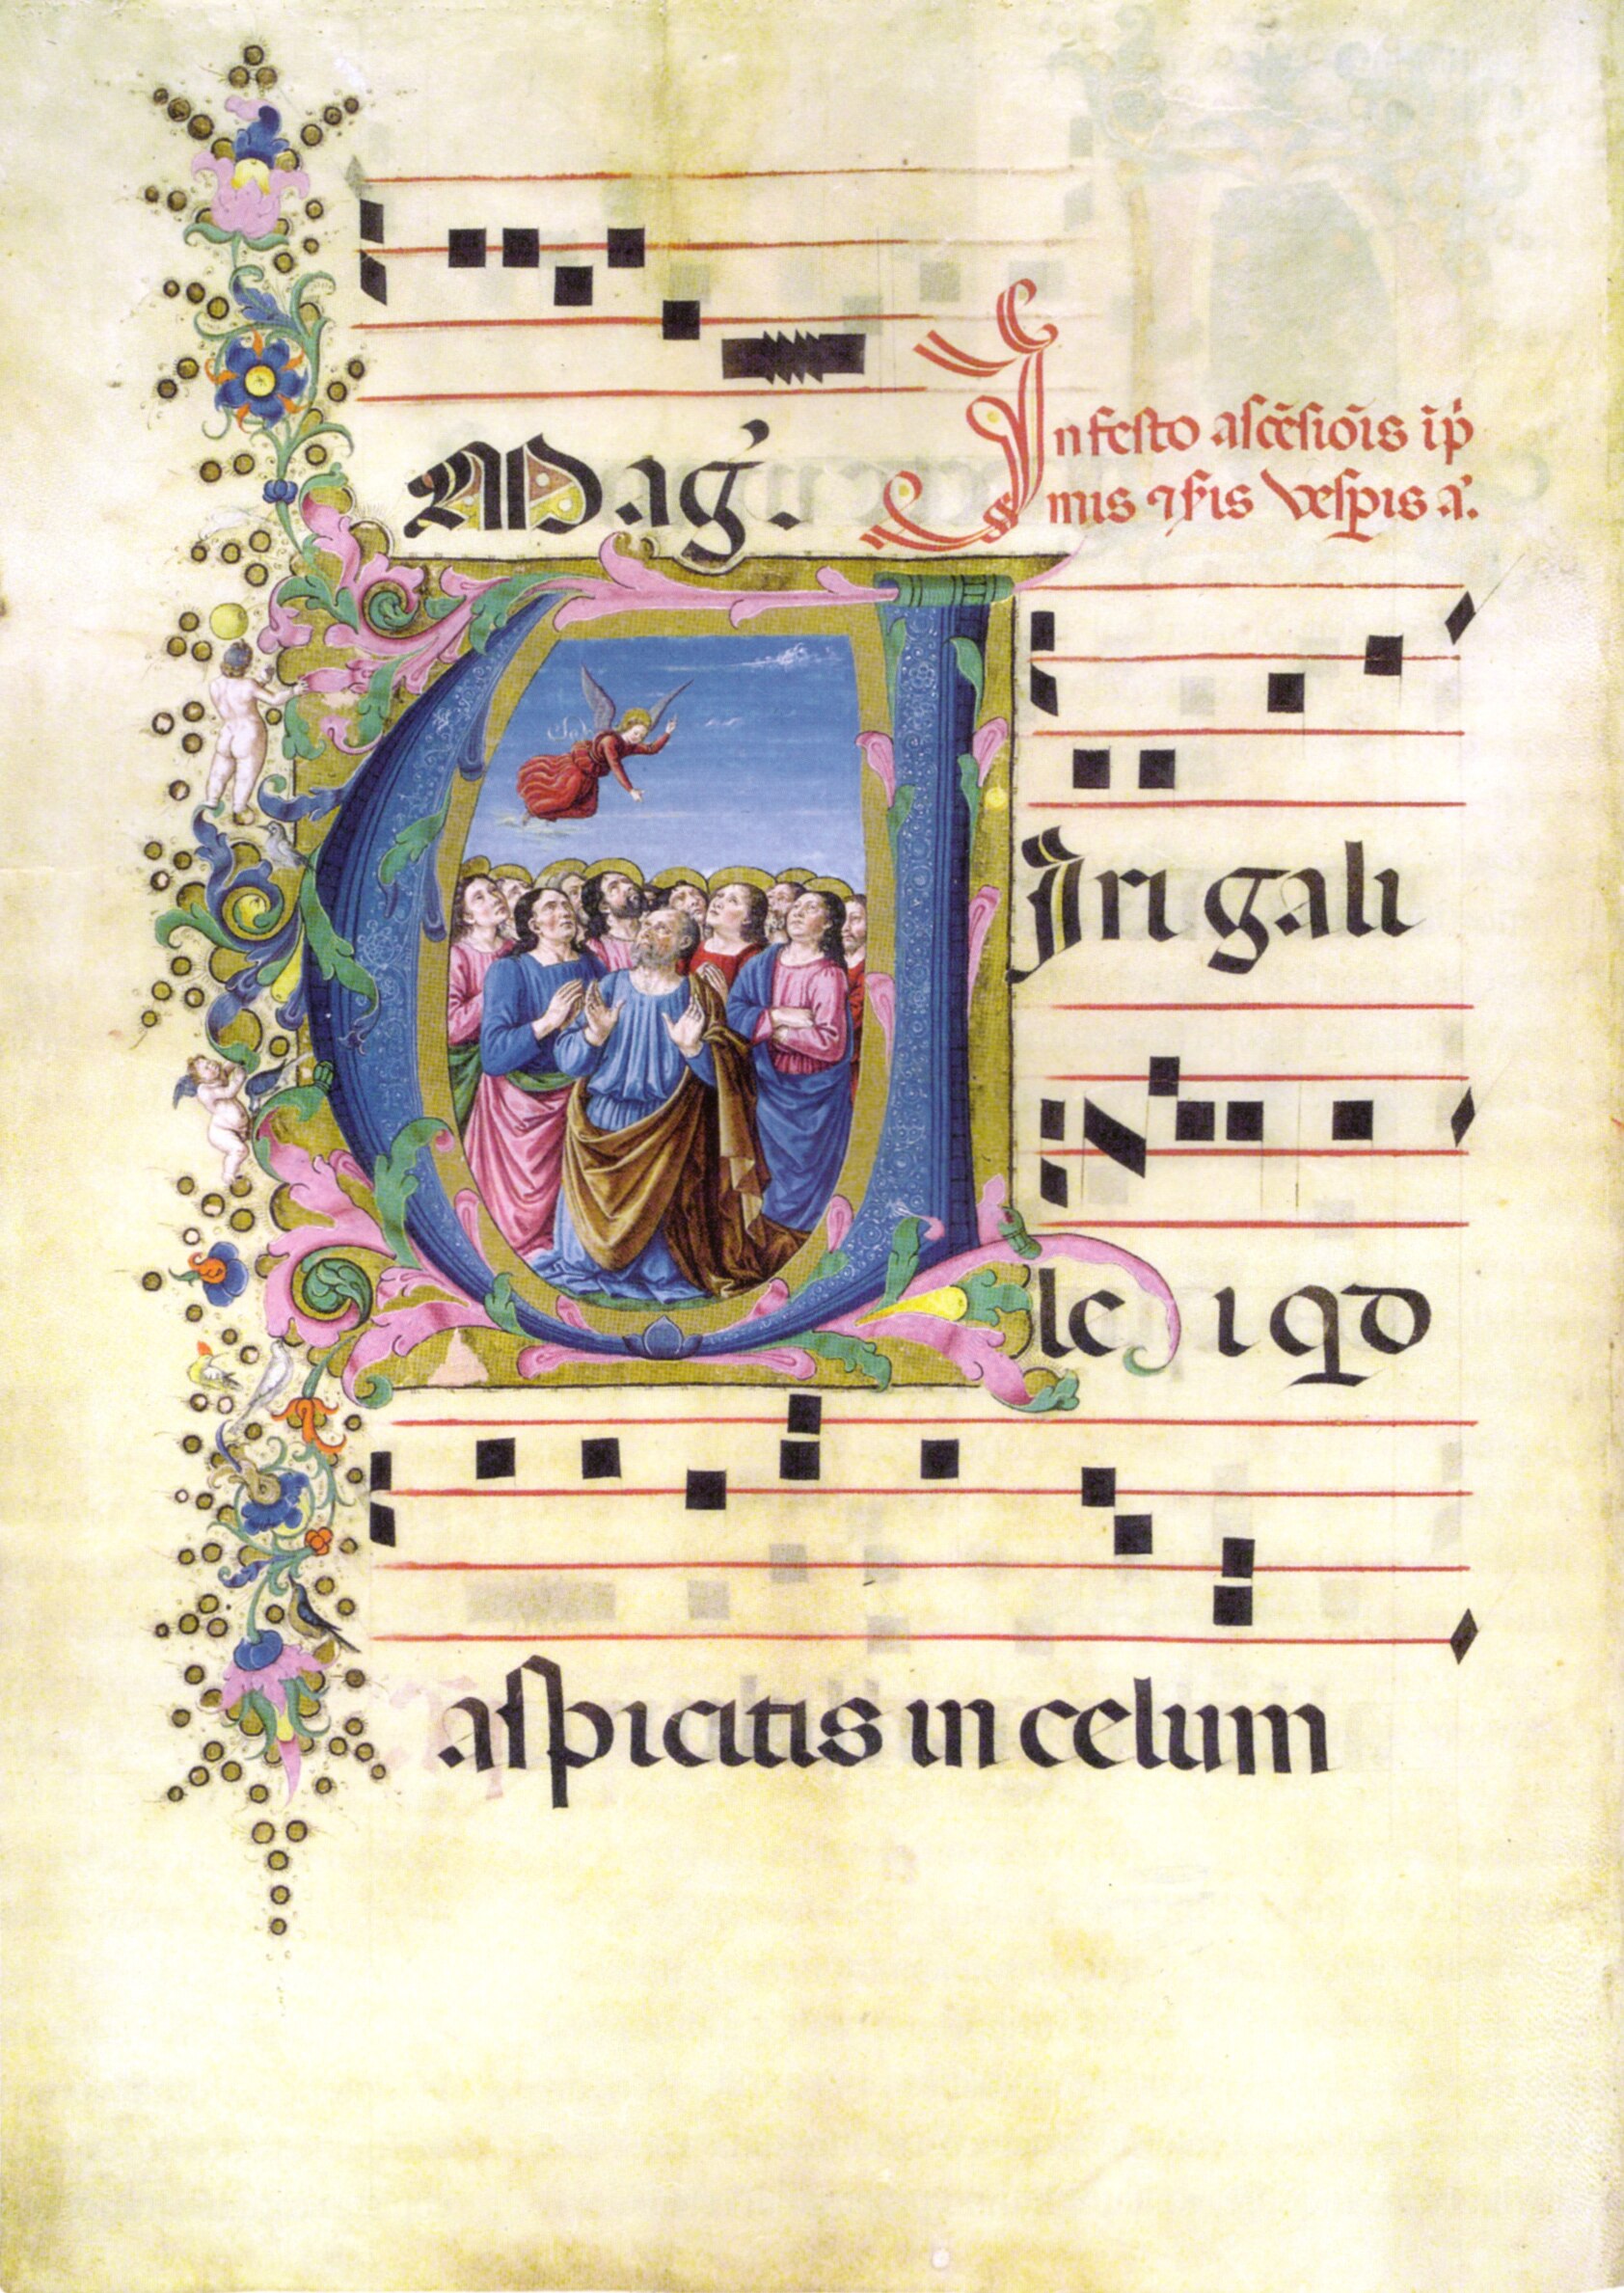 Mag'.
In festo ascēsiōis ip̄
mis ⁊ sc̄is vesp̄is a̅.
Viri gali
lei qd
aspicitis in celum